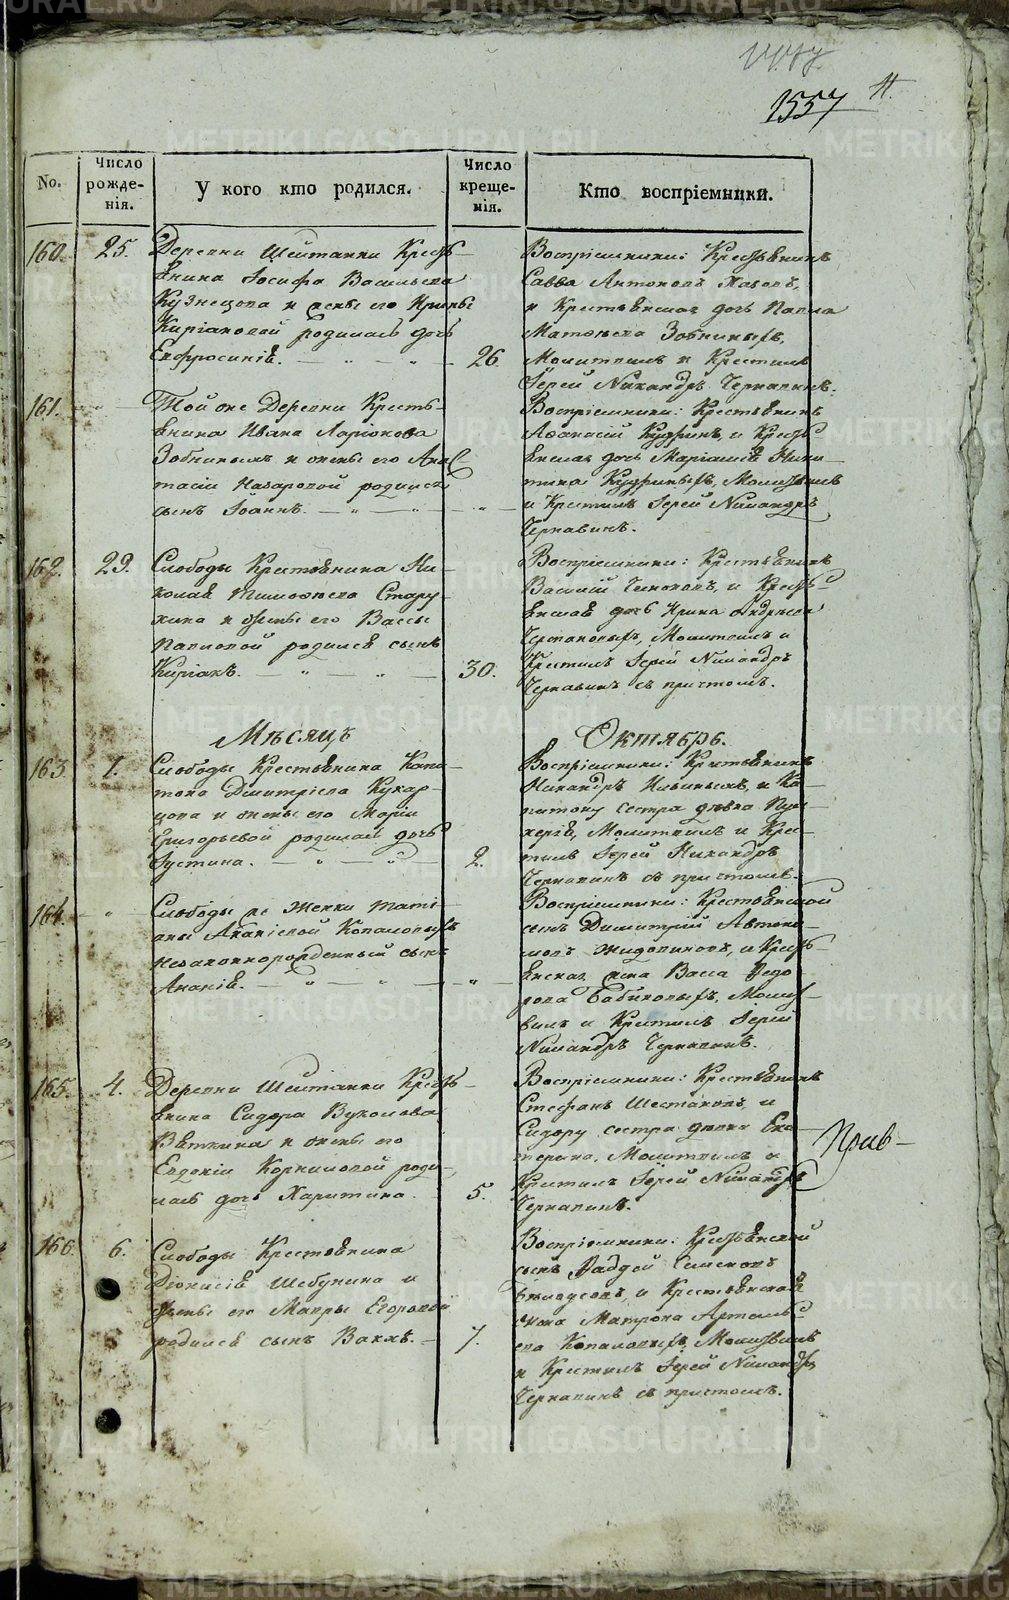 1557
No.
Число рожденія.
У кого кто родился.
Число крещенія.
Кто воспріемники.
160.
25.
Деревни Шайтанки Кресть-
янина Іосифа Васильева
Кузнецова и жены его Ирины
Киріаковой родилась дочь
Евфросинія.
26.
Воспріемники: Крестьянинъ
Савва Антоновъ
и Крестьянская дочь
Матвѣева Зобниныхъ,
Молитвилъ и Крестилъ
Іерей Никандръ Чернавинъ.
161.
Той же Деревни Кресть-
янина Ивана Ларіонова
Зобнинымъ и жены его Анас-
тасіи Назаровой родился
сынъ Іоаннъ.
Воспріемники: Крестьянинъ
Афанасій Кудринъ, и Кресть-
янская дочь Маріамія Ники-
тина Кудриныхъ, Молитвилъ
и Крестилъ Іерей Никандръ
Чернавинъ.
162.
29.
Слободы Крестьянина Ни-
колая Тимофеева Стару-
хина и жены его Вассы
Павловой родился сынъ
Киріакъ.
30.
Воспріемники: Крестьянинъ
Василій и Кресть-
янская дочь Ирина Андреева
Молитвилъ и
Крестилъ Іерей Никандръ
Чернавинъ съ причтомъ.
Мѣсяцъ
Октябрь.
163.
1.
Слободы Крестьянина Капи-
тона Димитріева Кухар-
цова и жены его Маріи
Григорьевой родилась дочь
Іустина.
2.
Воспріемники: Крестьянинъ
Никандръ Ильиныхъ, и Ка-
питону сестра дѣвка Пуль-
херія, Молитвилъ и Крес-
тилъ Іерей Никандръ
Чернавинъ съ причтомъ.
164.
Слободы же Женки Тать-
яны Ананіевой Копаловыхъ
незаконнорожденный сынъ
Ананія.
Воспріемники: Крестьянской
сынъ Димитрій Автоно-
мовъ и Кресть-
янская жена Васса Ѳедо-
рова Бабиковыхъ, Молит-
вилъ и Крестилъ Іерей
Никандръ Чернавинъ.
165.
4.
Деревни Шайтанки Кресть-
янина Сидора Вуколова
Вяткина и жены его
Евдокіи Корниловой роди-
лась дочь Харитина.
5.
Воспріемники: Крестьянинъ
Стефанъ Шестаковъ, и
Сидору сестра дѣвка Ека-
терина, Молитвилъ и
Крестилъ Іерей Никандръ
Чернавинъ.
166.
6.
Слободы Крестьянина
Діонисія Шебунина и
жены его Мавры Егоровой
родился сынъ Вакхъ.
7.
Воспріемники: Крестьянской
сынъ Фаддей Симеоновъ
и Крестьянская
жена Матрона Артемье-
ва Копаловыхъ, Молитвилъ
и Крестилъ Іерей Никандръ
Чернавинъ съ причтомъ.